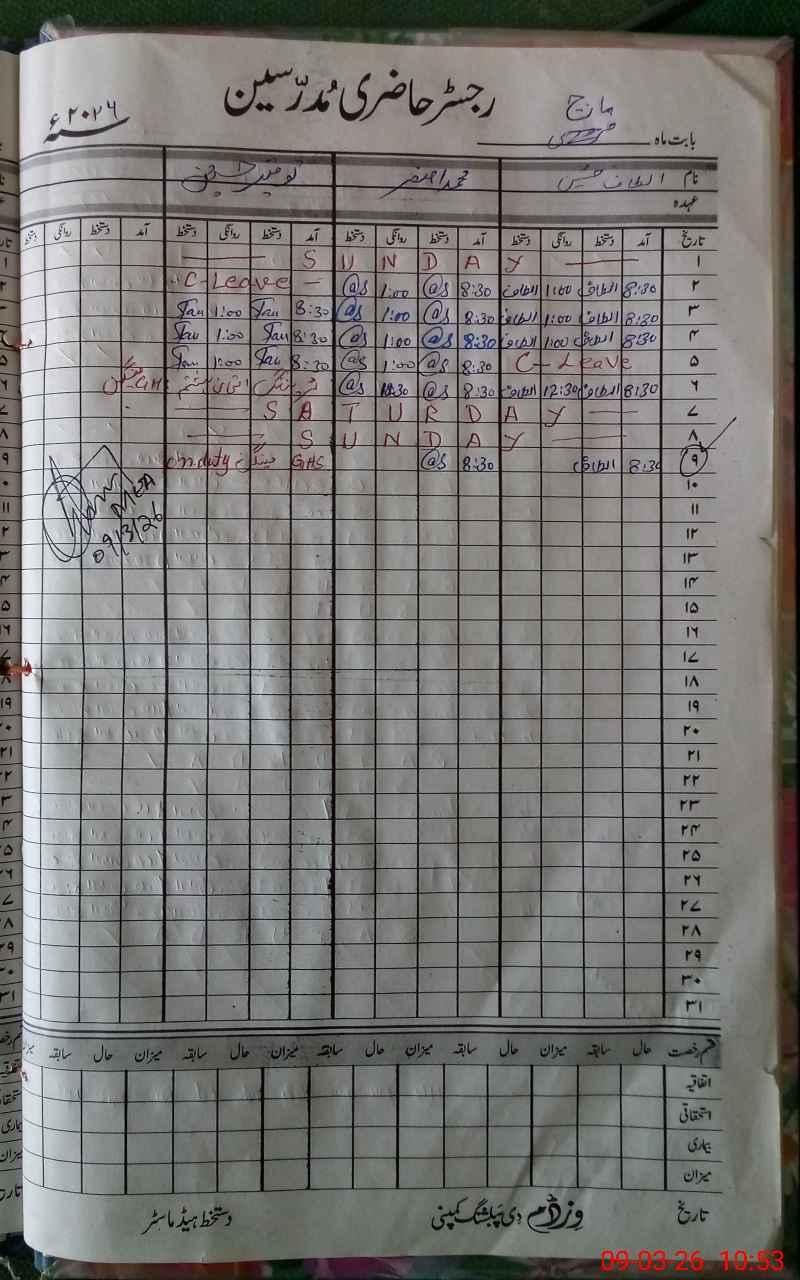 رجسٹر حاضری مُدرّسین
بابت ماہ مارچ ۲۰۲۶ء
نام الطاف حسین محمد اصغر توقیر حسین
عہدہ
تاریخ آمد دستخط روانگی دستخط آمد دستخط روانگی دستخط آمد دستخط روانگی دستخط آمد دستخط روانگی دستخط
۱ S U N D A Y
۲ 8:30 الطاف 1:00 الطاف 8:30 @s 1:00 @s C-Leave
۳ 8:30 الطاف 1:00 الطاف 8:30 @s 1:00 @s 8:30 Tau 1:00 Tau
۴ 8:30 الطاف 1:00 الطاف 8:30 @s 1:00 @s 8:30 Tau 1:00 Tau
۵ C-Leave 8:30 @s 1:00 @s 8:30 Tau 1:00 Tau
۶ 8:30 الطاف 12:30 الطاف 8:30 @s 12:30 @s GHS
۷ S A T U R D A Y
۸ S U N D A Y
۹ 8:30 الطاف 8:30 @s GHS on duty
MEA
09/3/26
۱۰
۱۱
۱۲
۱۳
۱۴
۱۵
۱۶
۱۷
۱۸
۱۹
۲۰
۲۱
۲۲
۲۳
۲۴
۲۵
۲۶
۲۷
۲۸
۲۹
۳۰
۳۱
قسم رخصت حال سابقہ میزان حال سابقہ میزان حال سابقہ میزان حال سابقہ میزان حال سابقہ میزان
اتفاقیہ
استحقاقی
بیماری
میزان
تاریخ وزڈم دی پبلشنگ کمپنی دستخط ہیڈ ماسٹر
09-03-26 10:53